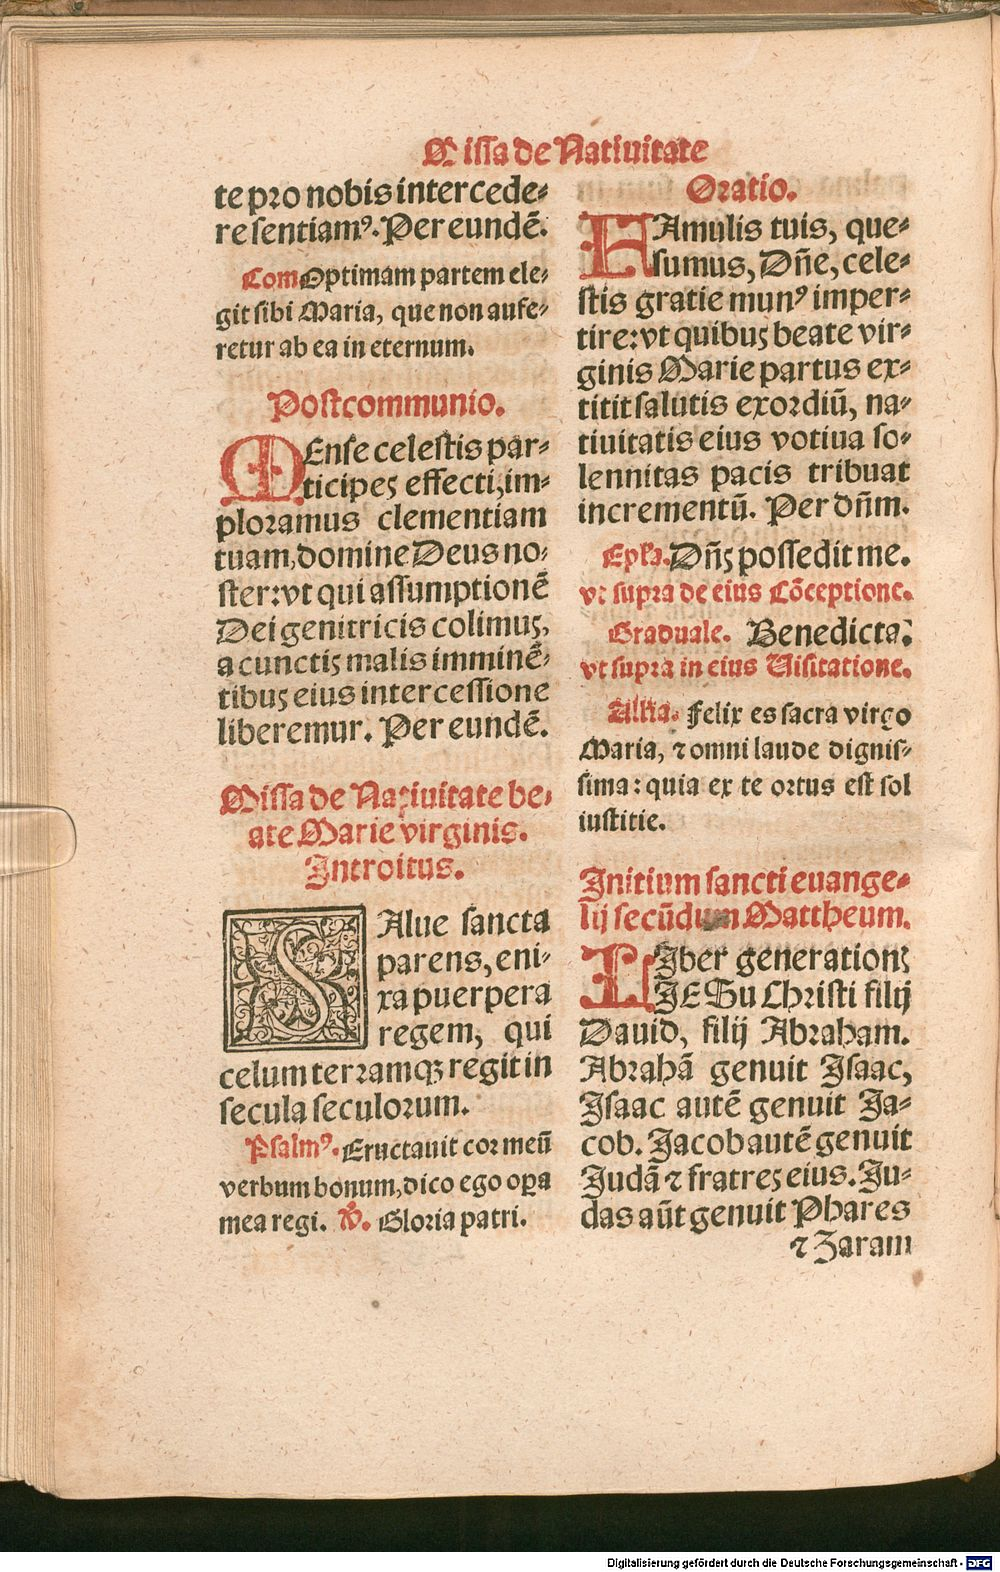 Missa de Natiuitate
te pro nobis intercede-
re sentiamꝰ. Per eundē.
Com Optimam partem ele-
git sibi Maria, que non aufe-
retur ab ea in eternum.
Postcommunio.
MEnse celestis par-
ticipes effecti, im-
ploramus clementiam
tuam, domine Deus no-
ster: vt qui assumptionē
Dei genitricis colimus,
a cunctis malis imminē-
tibus eius intercessione
liberemur. Per eundē.
Missa de Natiuitate be-
ate Marie virginis.
Introitus.
SAlue sancta
parens, eni-
xa puerpera
regem, qui
celum terramqꝫ regit in
secula seculorum.
Psalmꝰ. Eructauit cor meū
verbum bonum, dico ego oꝑa
mea regi. V̊. Gloria patri.
Oratio.
FAmulis tuis, que-
sumus, Dñe, cele-
stis gratie munꝰ imper-
tire: vt quibus beate vir-
ginis Marie partus ex-
titit salutis exordiū, na-
tiuitatis eius votiua so-
lennitas pacis tribuat
incrementū. Per dñm.
Epła. Dñs possedit me.
vt supra de eius Cōceptione.
Graduale. Benedicta:
vt supra in eius Uisitatione.
Allīa. Felix es sacra virgo
Maria, ⁊ omni laude dignis-
sima: quia ex te ortus est sol
iustitie.
Initium sancti euange-
lij secūdum Mattheum.
LIber generationis
IESu Christi filij
Dauid, filij Abraham.
Abrahā genuit Isaac,
Isaac autē genuit Ja-
cob. Jacob autē genuit
Judā ⁊ fratres eius. Ju-
das aūt genuit Phares
⁊ Zaram
Digitalisierung gefördert durch die Deutsche Forschungsgemeinschaft - DFG